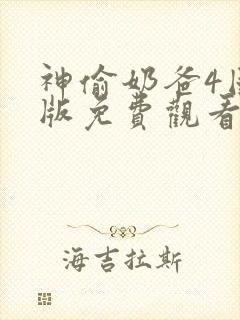 神偷奶爸4
版免費觀看
海吉拉斯